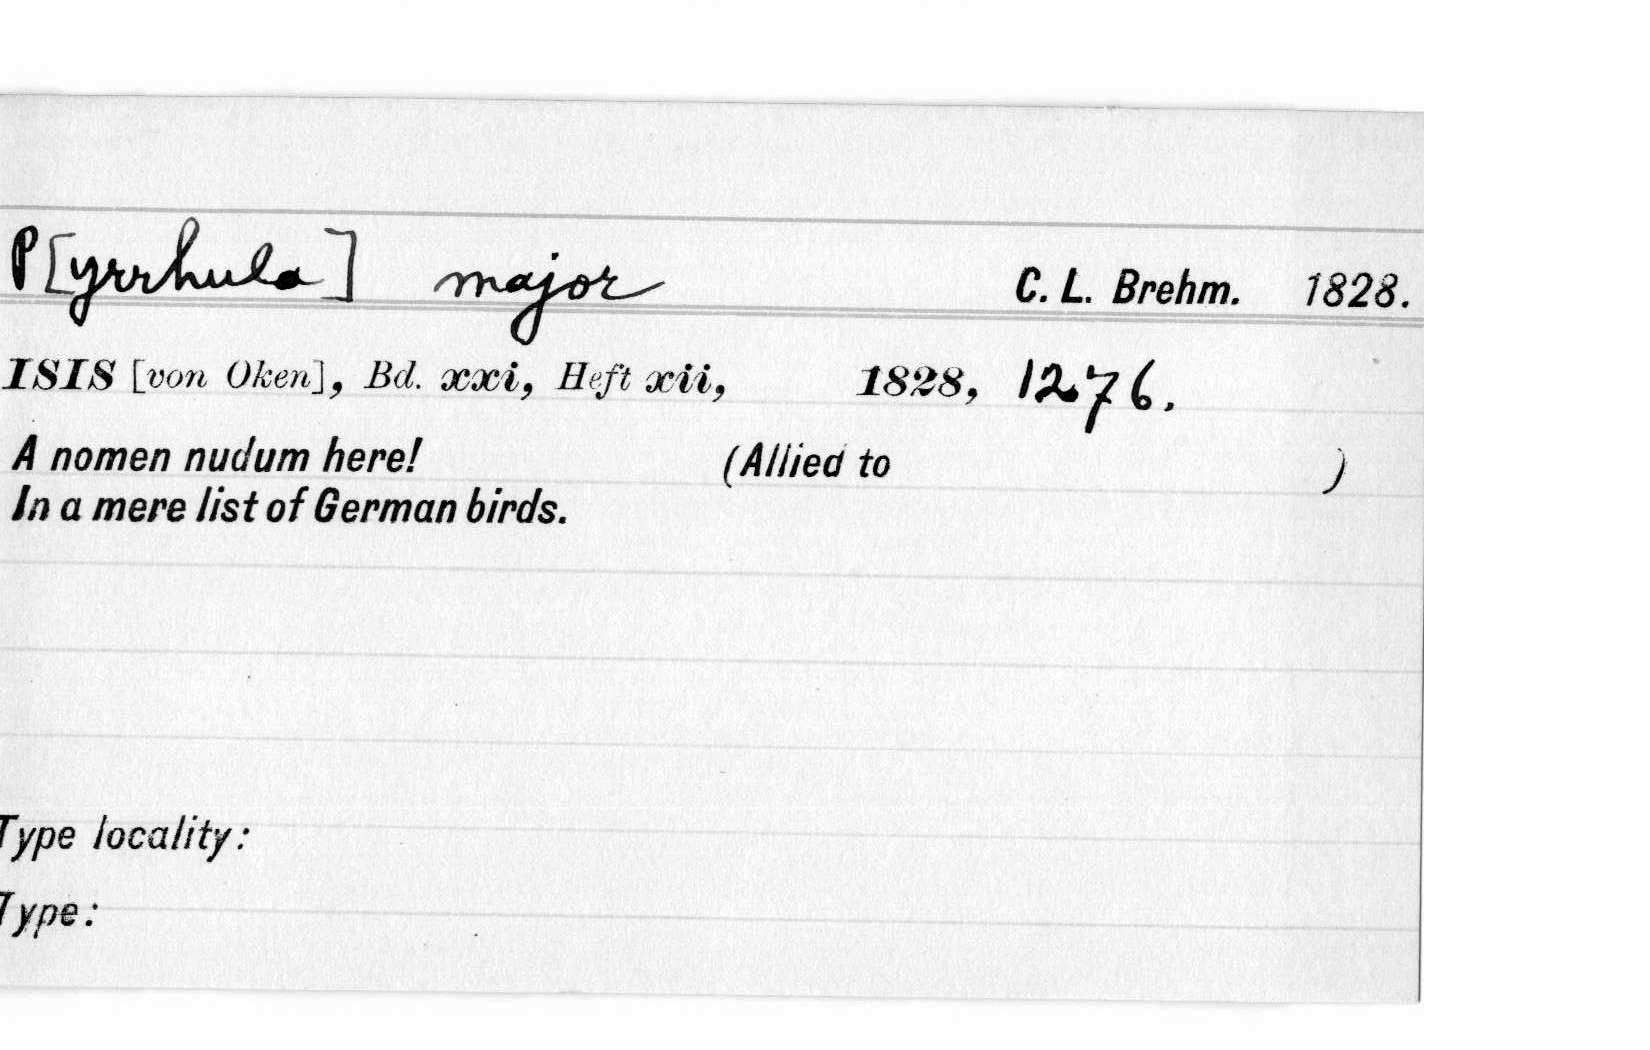 P[yrrhula] major C. L. Brehm. 1828.
ISIS [von Oken], Bd. xxi, Heft xii, 1828, 1276.
A nomen nudum here! (Allied to )
In a mere list of German birds.
Type locality:
Type: